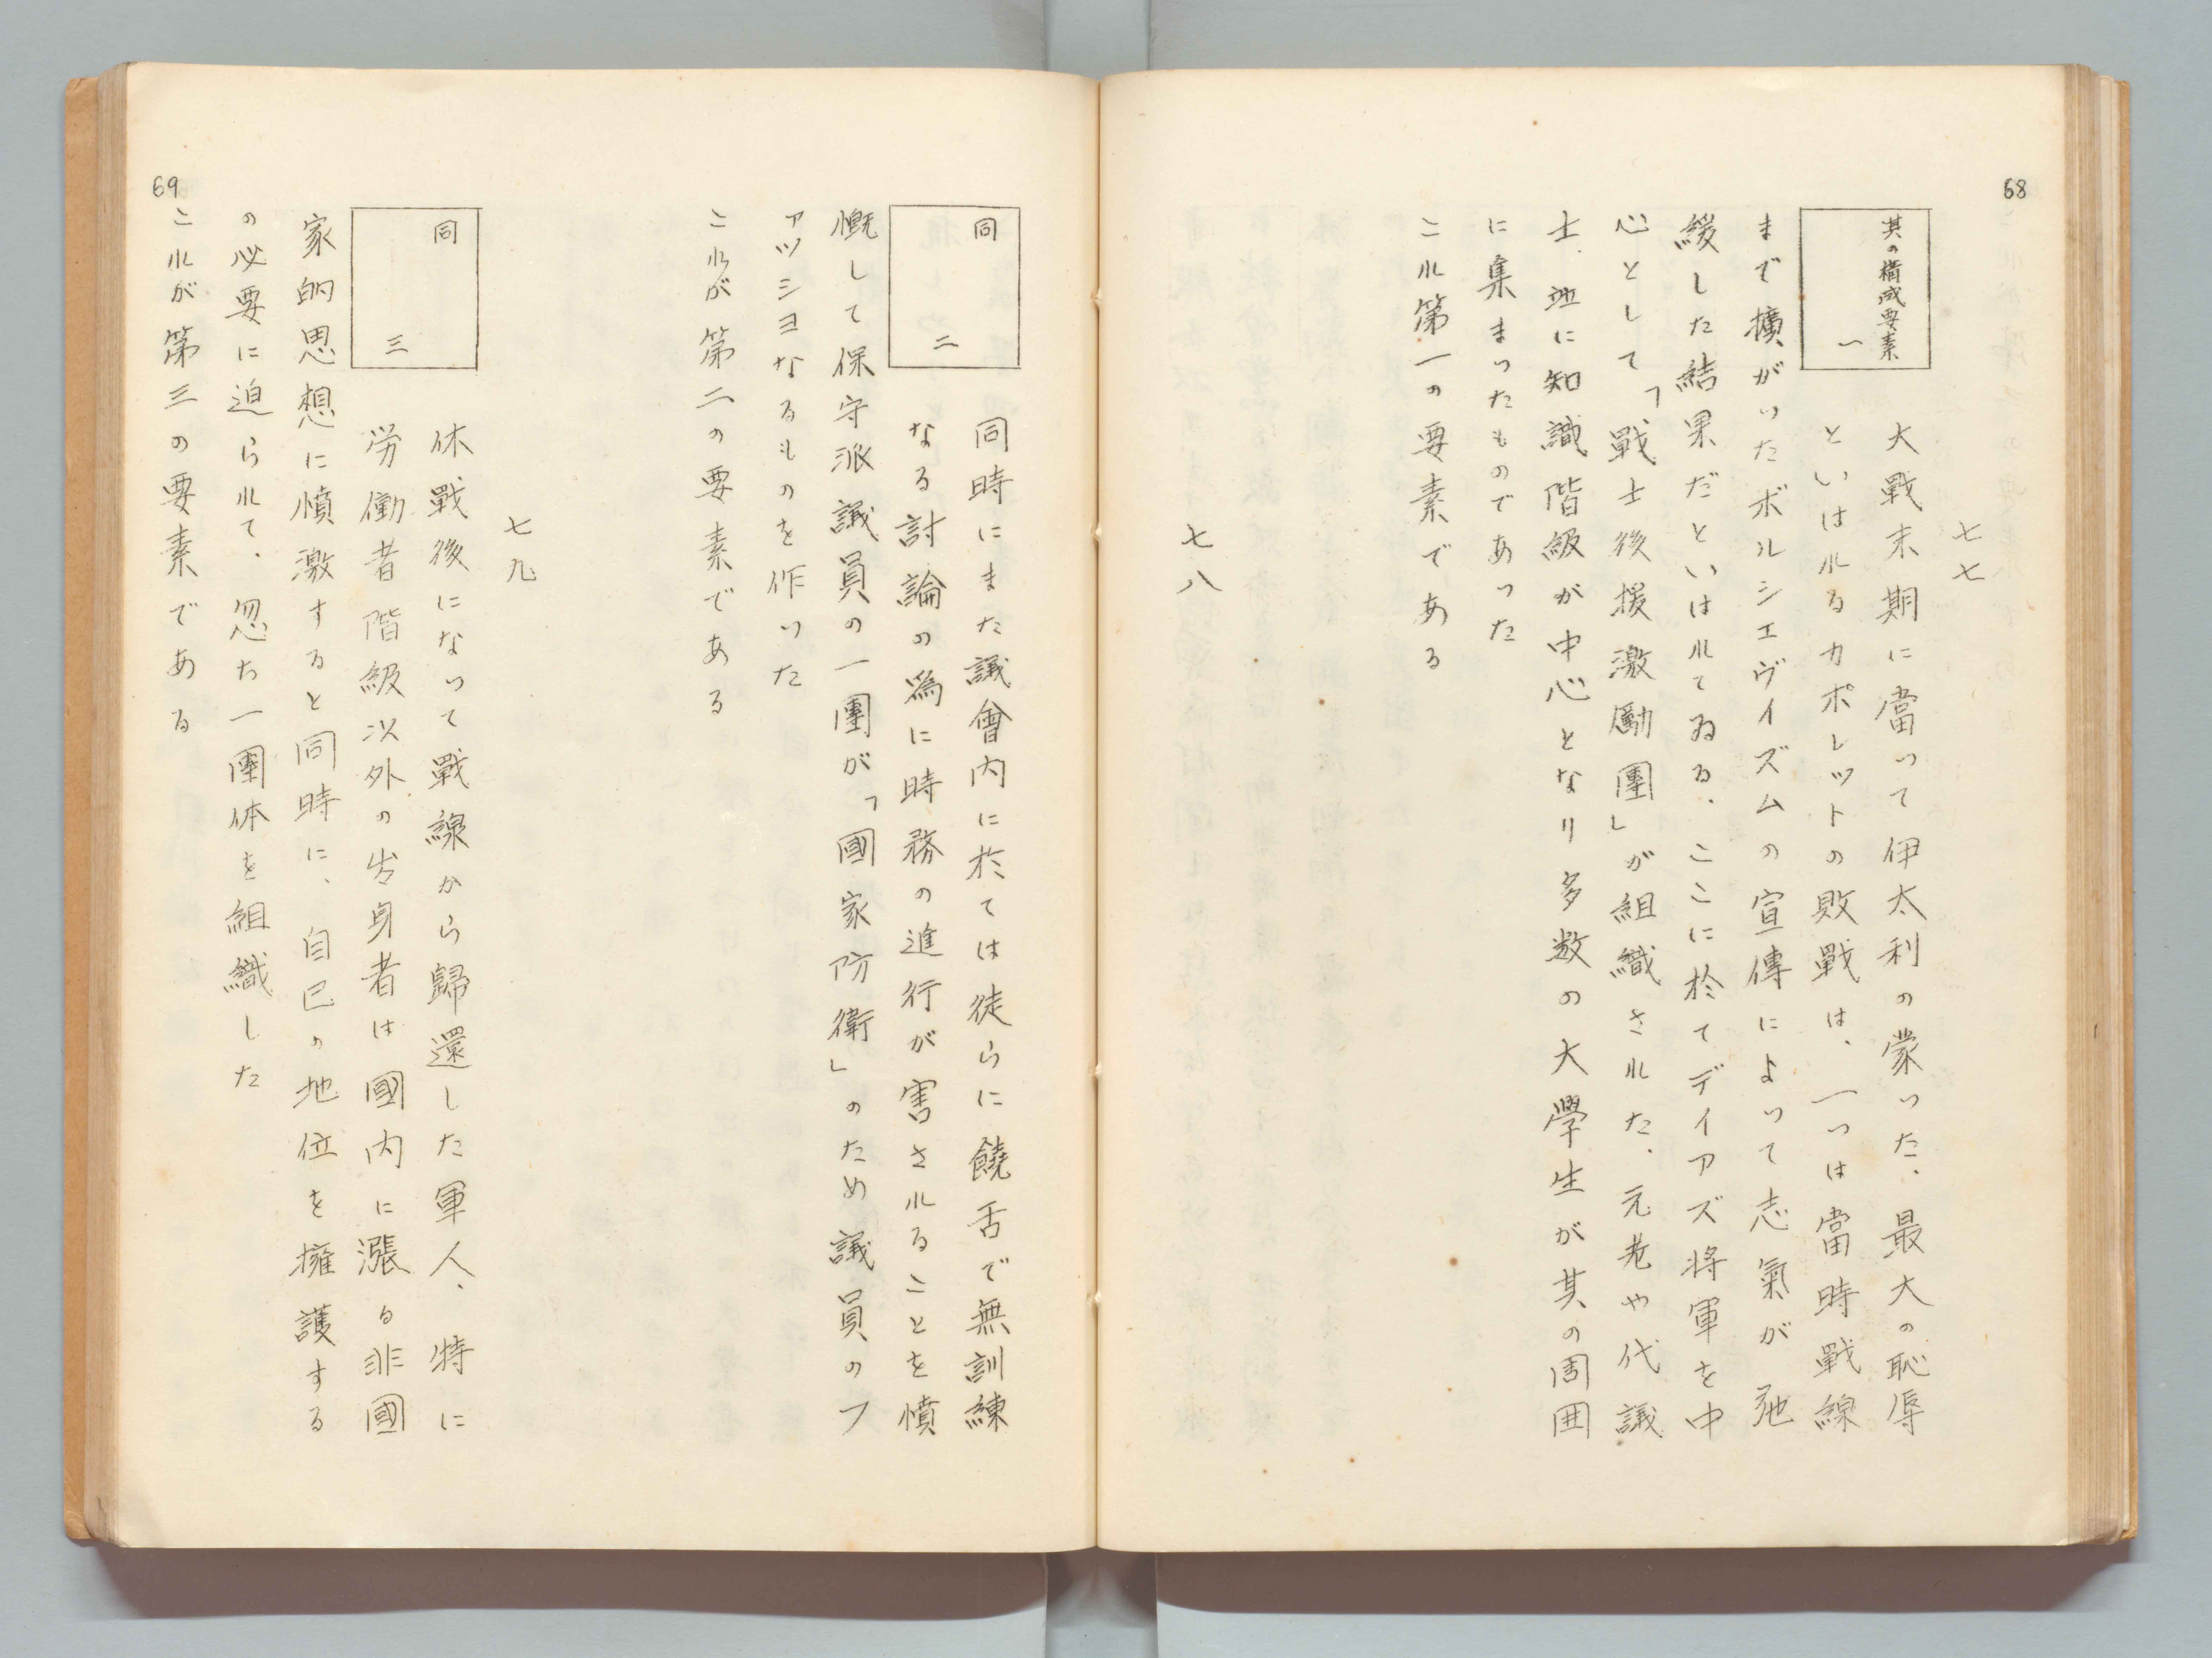 68
七七
其の構成要素
一
大戰末期に當って伊太利の蒙った、最大の恥辱
といはれるカポレットの敗戰は、一つは當時戰線
まで擴がったボルシエヴイズムの宣傳によって志氣が弛
緩した結果だといはれてゐる、ここに於てデイアズ将軍を中
心として「戰士後援激勵團」が組織された、元老や代議
士、並に知識階級が中心となり多数の大學生が其の周囲
に集まったものであった
これ第一の要素である
七八
同
二
同時にまた議會内に於ては徒らに饒舌で無訓練
なる討論の爲に時務の進行が害されることを憤
慨して保守派議員の一團が「國家防衛」のため議員のフ
アツシヨなるものを作った
これが第二の要素である
七九
同
三
休戰後になって戰線から歸還した軍人、特に
労働者階級以外の出身者は國内に漲る非國
家的思想に憤激すると同時に、自己の地位を擁護する
の必要に迫られて、忽ち一團体を組織した
これが第三の要素である
69